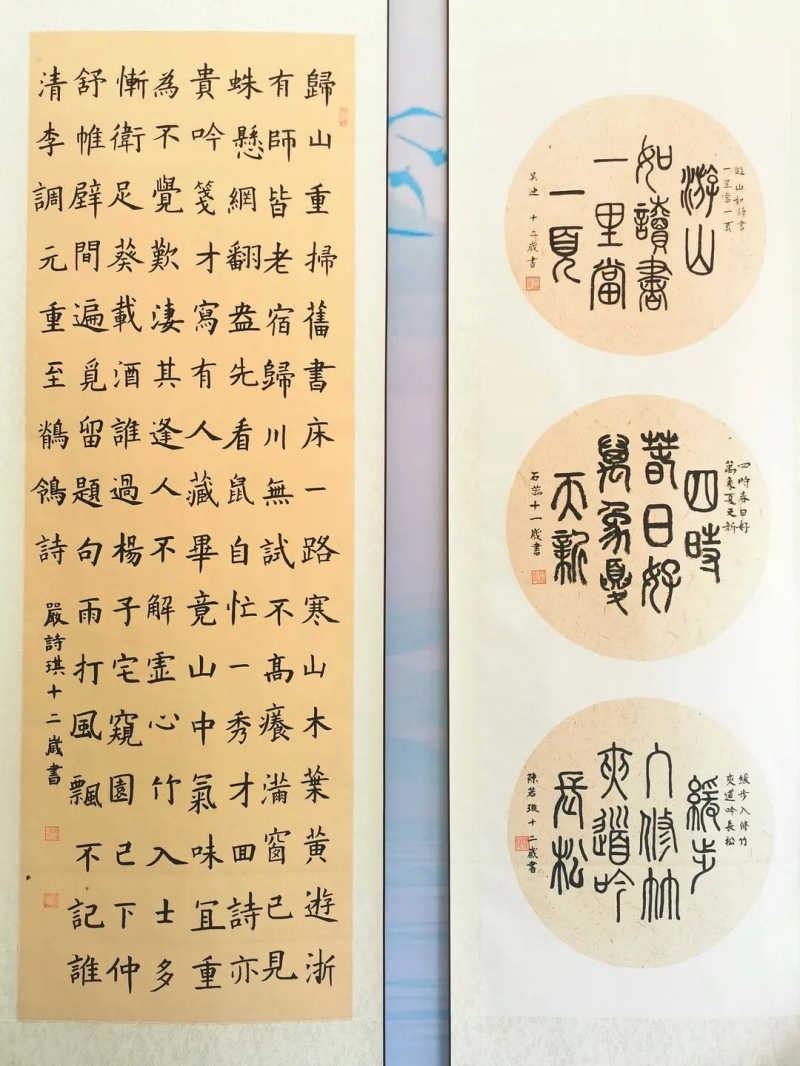 歸山重掃舊書床一路寒山木葉黃遊浙
有師皆老宿歸川無試不高癢滿窗已見
蛛懸網翻盎先看鼠自忙一秀才田詩亦
貴吟箋才寫有人藏畢竟山中氣味宜重
為不覺歎淒其逢人不解靈心竹入士多
慚衛足葵載酒誰過楊子宅窺園已下仲
舒帷壁間遍覓留題句雨打風飄不記誰
清李調元重至鶺鴒詩
嚴詩琪十二歲書
遊山如讀書
一里當一頁
游山
如讀書
一里當
一頁
吴迪 十二歲書
四時春日好
萬象夏天新
四時
春日好
萬象夏
天新
石蕊十一歲書
緩步入修竹
夾道吟長松
緩步
入修竹
夾道吟
長松
陳若璇十二歲書